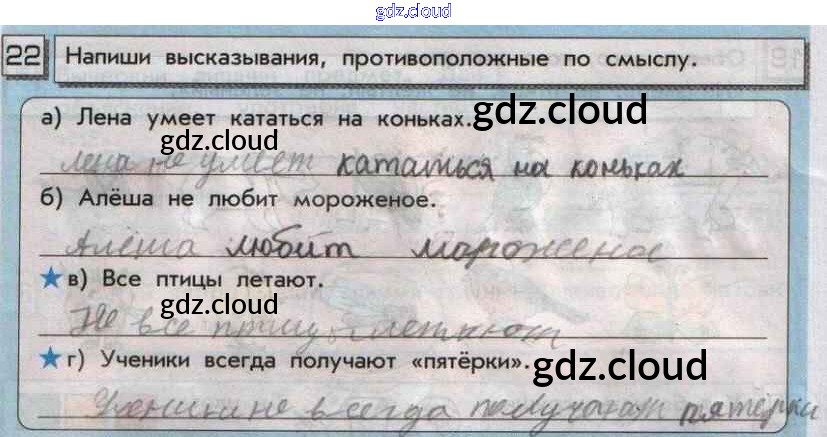 gdz.cloud
22 Напиши высказывания, противоположные по смыслу.
а) Лена умеет кататься на коньках. gdz.cloud
gdz.cloud
Лена не умеет кататься на коньках
б) Алёша не любит мороженое.
Алёша любит мороженое
★ в) Все птицы летают.
gdz.cloud gdz.cloud
Не все птицы летают
★ г) Ученики всегда получают «пятёрки». gdz.cloud
Ученики не всегда получают пятёрки